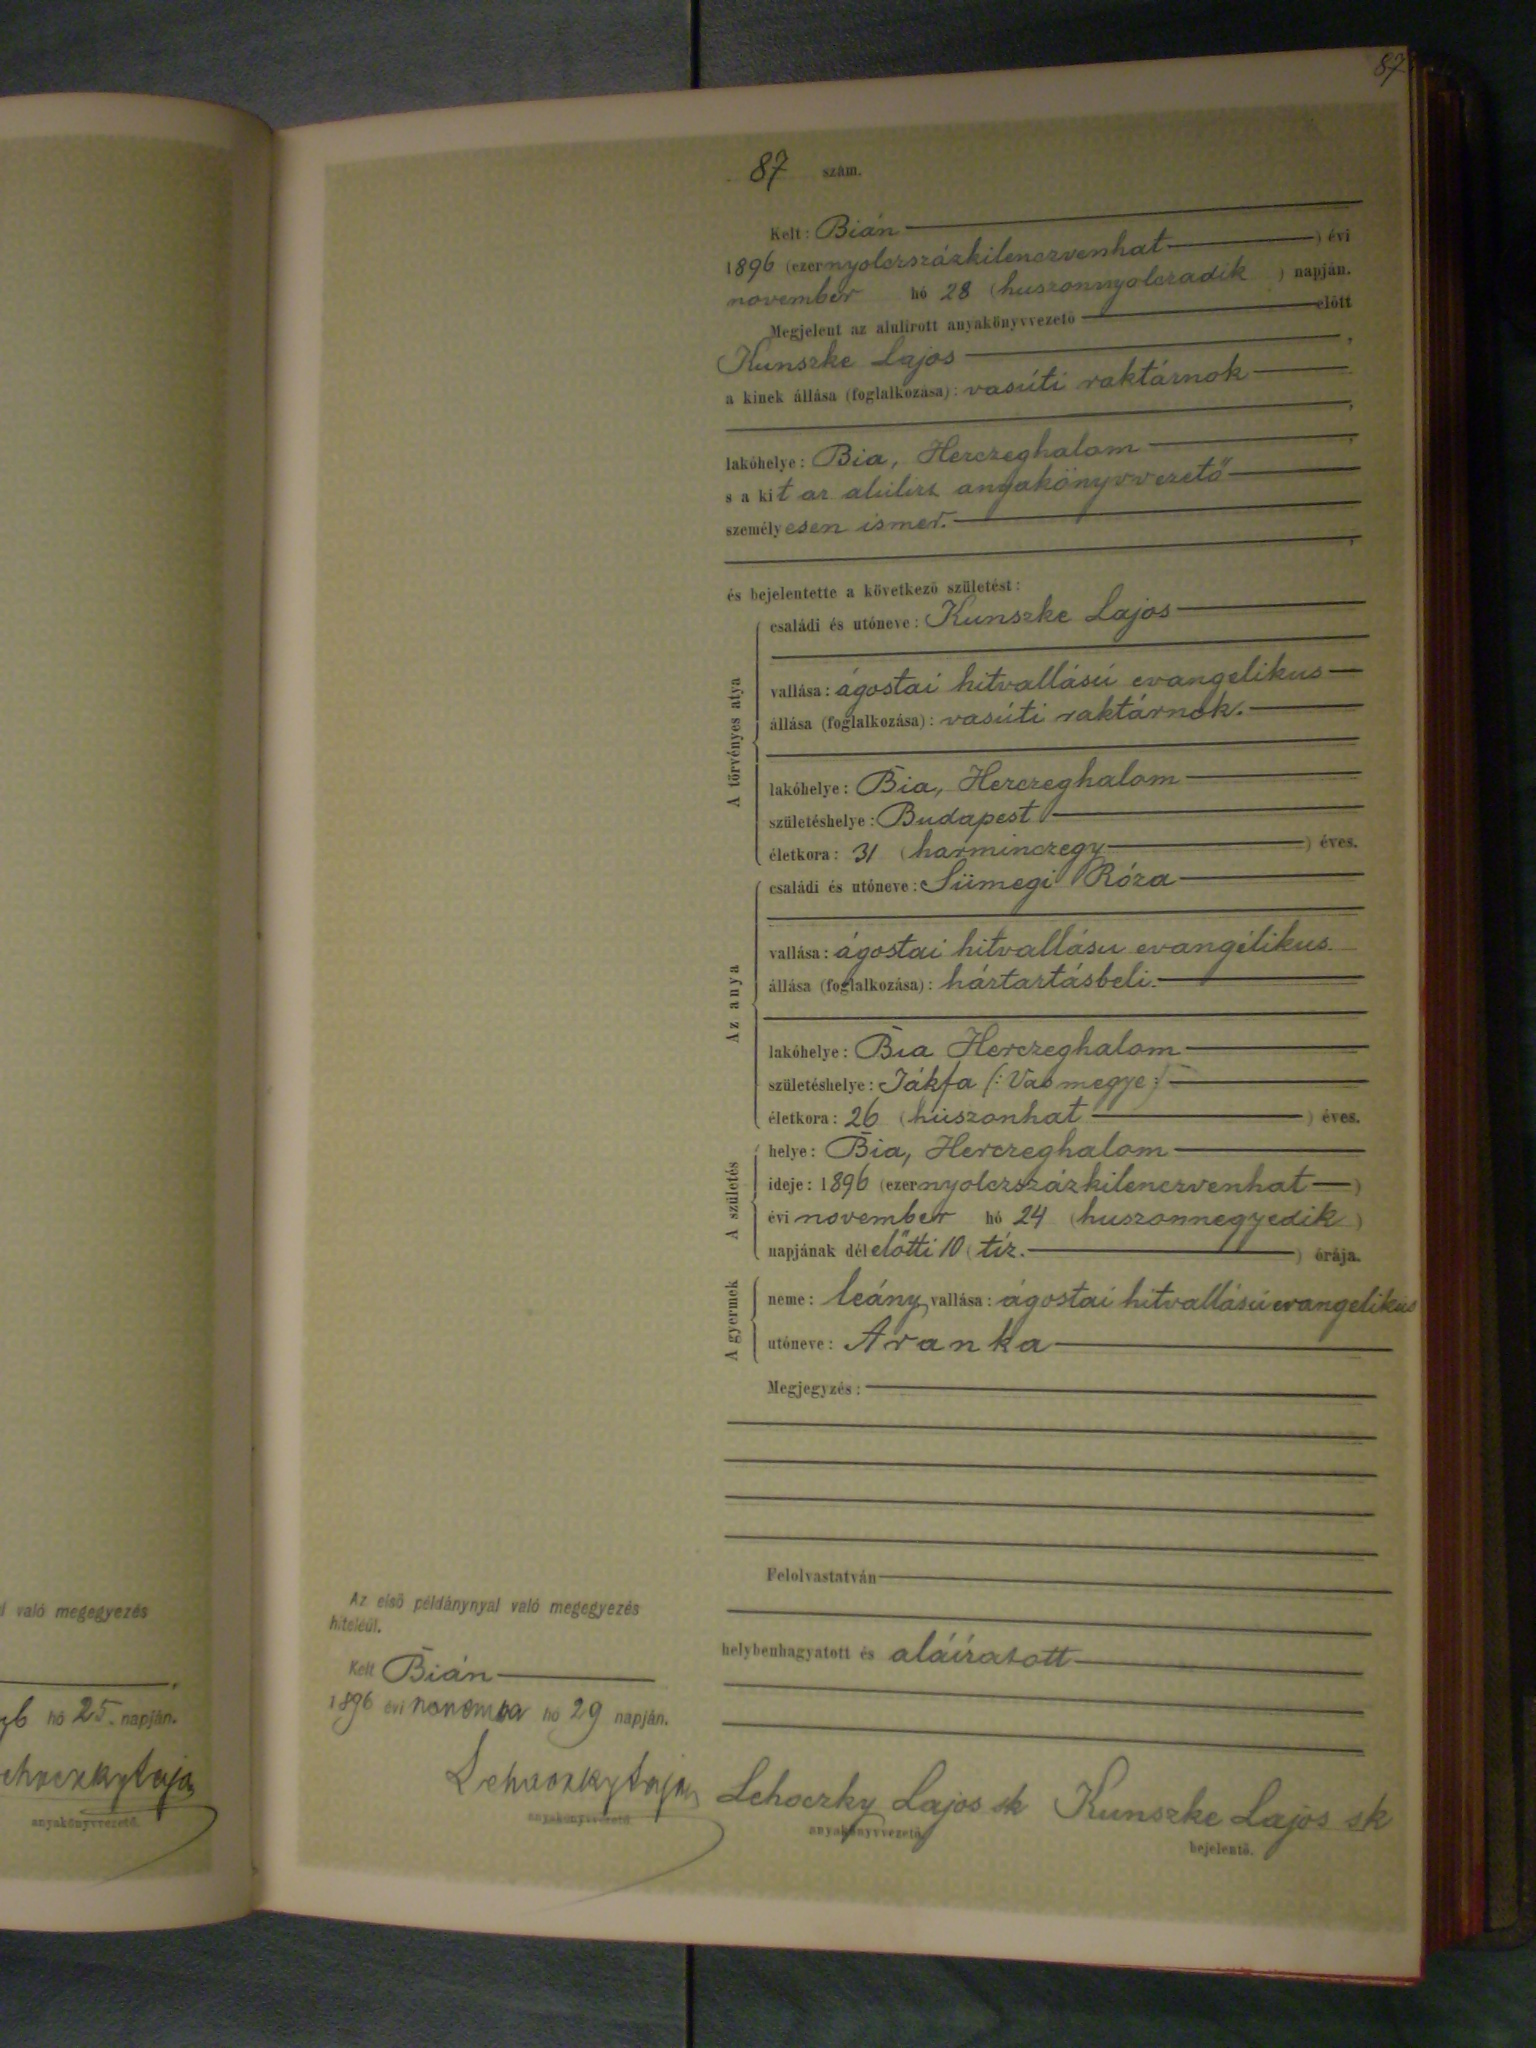 87
87 szám.
Kelt: Bián
1896 (ezernyolczszázkilenczvenhat) évi
november hó 28 (huszonnyolczadik) napján.
Megjelent az alulírott anyakönyvvezető előtt
Kunszke Lajos,
a kinek állása (foglalkozása): vasúti raktárnok
,
lakóhelye: Bia, Herczeghalom,
s a kit az alulirt anyakönyvvezető
személyesen ismer.
,
és bejelentette a következő születést:
A törvényes atya
családi és utóneve: Kunszke Lajos
vallása: ágostai hitvallású evangelikus
állása (foglalkozása): vasúti raktárnok.
lakóhelye: Bia, Herczeghalom
születéshelye: Budapest
életkora: 31 (harminczegy) éves.
Az anya
családi és utóneve: Sümegi Róza
vallása: ágostai hitvallásu evangélikus.
állása (foglalkozása): háztartásbeli.
lakóhelye: Bia Herczeghalom
születéshelye: Jákfa (: Vas megye :)
életkora: 26 (huszonhat) éves.
A születés
helye: Bia, Herczeghalom
ideje: 1896 (ezernyolczszázkilenczvenhat)
évi november hó 24 (huszonnegyedik)
napjának délelőtti 10 (tíz.) órája.
A gyermek
neme: leány, vallása: ágostai hitvallású evangelikus
utóneve: Aranka
Megjegyzés:
Felolvastatván
helybenhagyatott és aláíratott
Lehoczky Lajos sk Kunszke Lajos sk
anyakönyvvezető. bejelentő.
Az első példánynyal való megegyezés
hiteléül.
Kelt Bián
1896 évi november hó 29 napján.
Lehoczky Lajos
anyakönyvvezető
való megegyezés
hó 25. napján.
anyakönyvvezető.